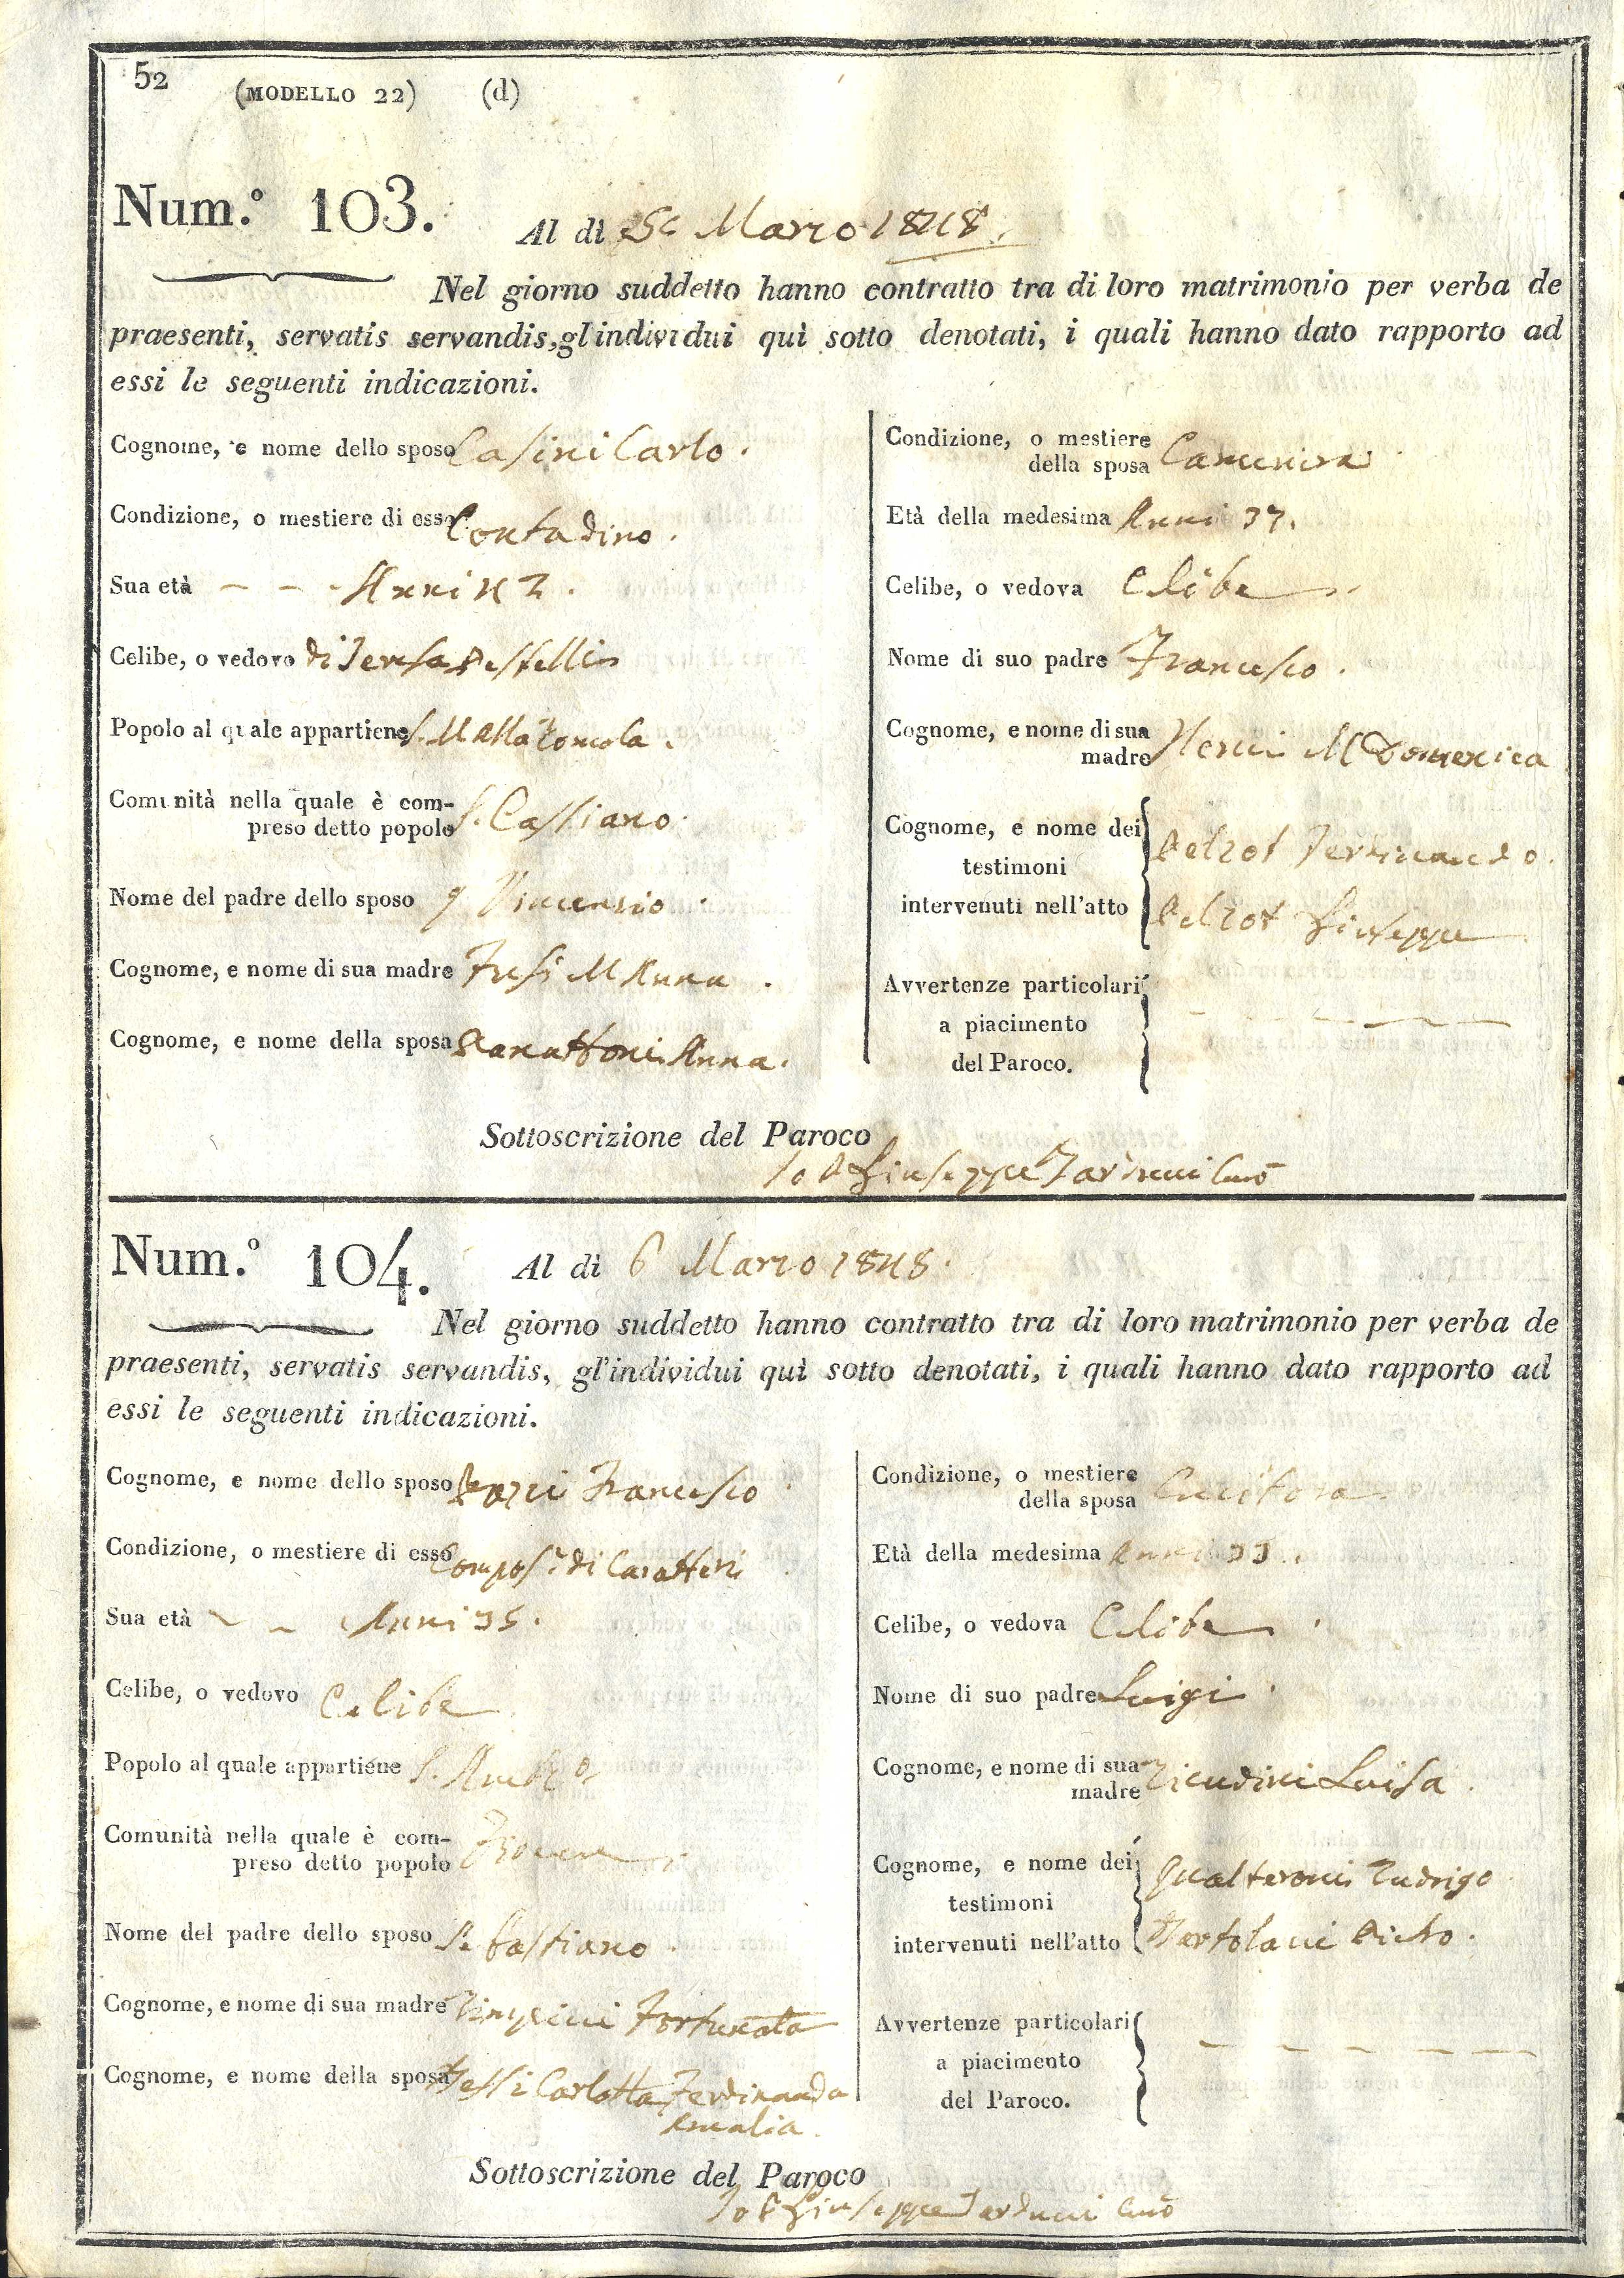 52 (MODELLO 22) (d)
Num.º 103. Al dì Marzo 1848.
Nel giorno suddetto hanno contratto tra di loro matrimonio per verba de
praesenti, servatis servandis, gl'individui quì sotto denotati, i quali hanno dato rapporto ad
essi le seguenti indicazioni.
Cognome, e nome dello sposo Casini Carlo.
Condizione, o mestiere di esso Contadino.
Sua età - - - Anni 42.
Celibe, o vedovo di Teresa
Popolo al quale appartiene S. M alla Romola.
Comunità nella quale è com-
preso detto popolo S. Cassiano.
Nome del padre dello sposo q Vincenzio.
Cognome, e nome di sua madre Fusi M Anna.
Cognome, e nome della sposa Anna.
Condizione, o mestiere
della sposa Cameriera
Età della medesima Anni 37.
Celibe, o vedova Celibe
Nome di suo padre Francesco.
Cognome, e nome di sua
madre M Domenica
Cognome, e nome dei
testimoni
intervenuti nell'atto
Pelzot Ferdinando.
Pelzot Giuseppe
Avvertenze particolari
a piacimento
del Paroco.
Sottoscrizione del Paroco
Io P Giuseppe Tarducci Curo
Num.º 104. Al dì 6 Marzo 1848.
Nel giorno suddetto hanno contratto tra di loro matrimonio per verba de
praesenti, servatis servandis, gl'individui quì sotto denotati, i quali hanno dato rapporto ad
essi le seguenti indicazioni.
Cognome, e nome dello sposo Francesco
Condizione, o mestiere di esso Compos.e di Caratteri
Sua età - - Anni 35.
Celibe, o vedovo Celibe
Popolo al quale appartiene S. Ambro
Comunità nella quale è com-
preso detto popolo Firenze
Nome del padre dello sposo Sebastiano.
Cognome, e nome di sua madre Fortunata
Cognome, e nome della sposa Carlotta Ferdinanda
Amalia.
Condizione, o mestiere
della sposa Cucitora
Età della medesima Anni 33.
Celibe, o vedova Celibe
Nome di suo padre Luigi.
Cognome, e nome di sua
madre Luisa.
Cognome, e nome dei
testimoni
intervenuti nell'atto
Gualteroni Rudrigo
Bartolani
Avvertenze particolari
a piacimento
del Paroco.
Sottoscrizione del Paroco
Io P Giuseppe Tarducci Curo